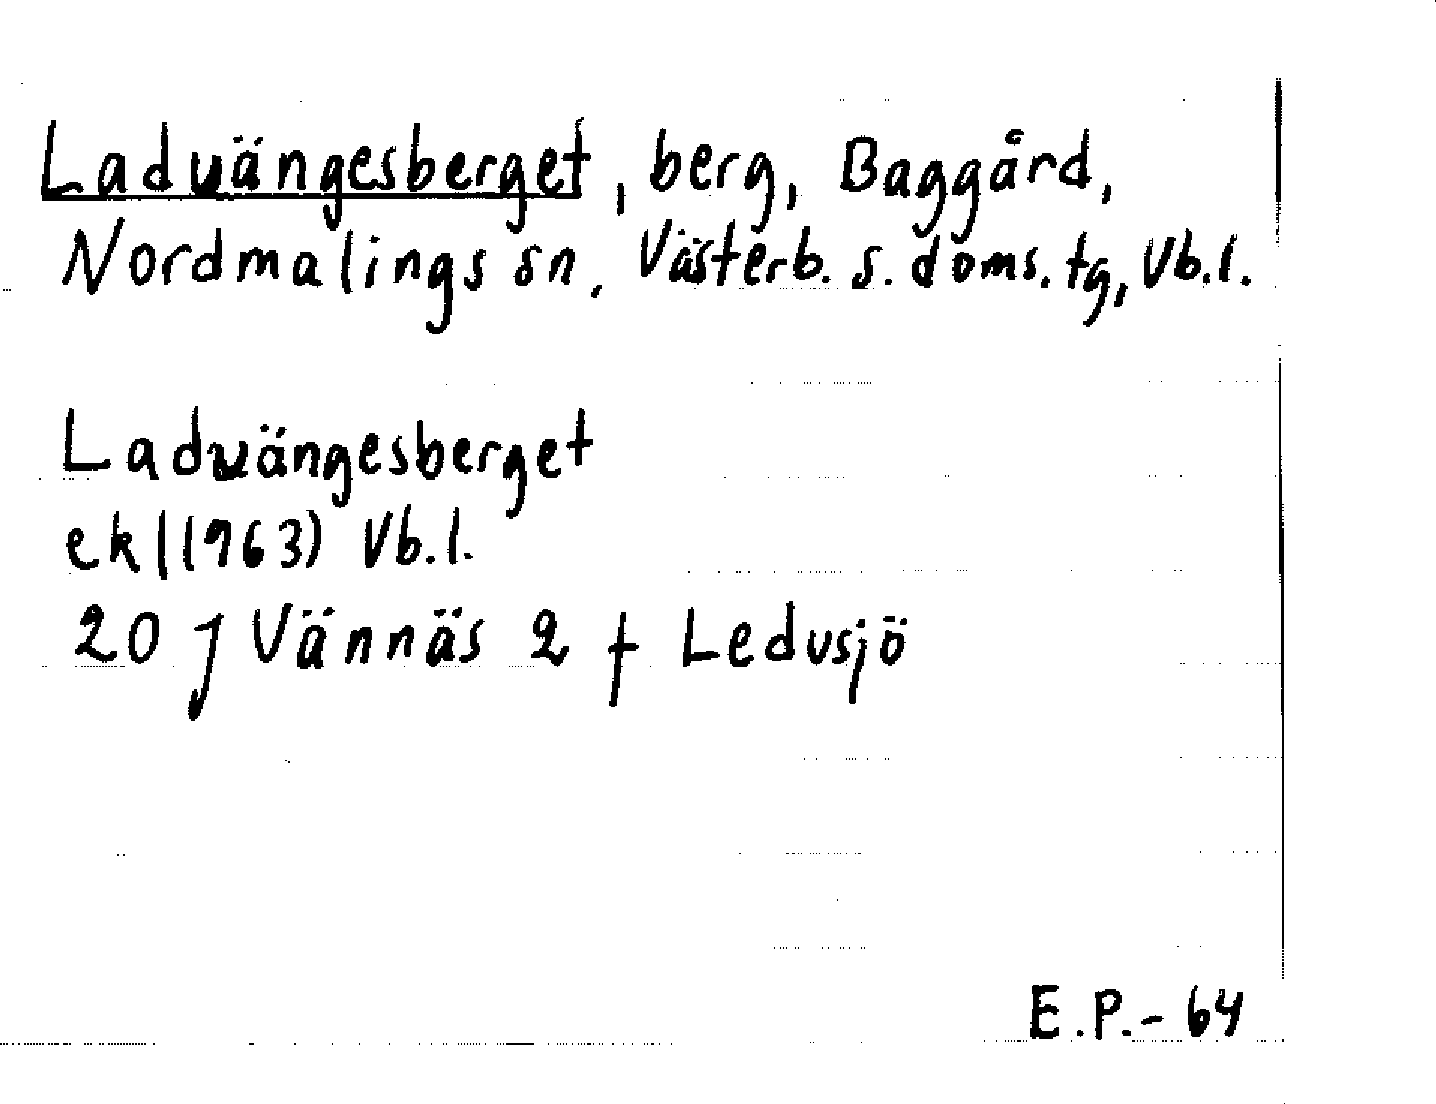 Laduängesberget, berg, Baggård,
Nordmalings sn, Västerb. s. doms. tg, Vb.l.
Laduängesberget
ek (1963) Vb.l.
20 J Vännäs 2 f Ledusjö
E.P.-64